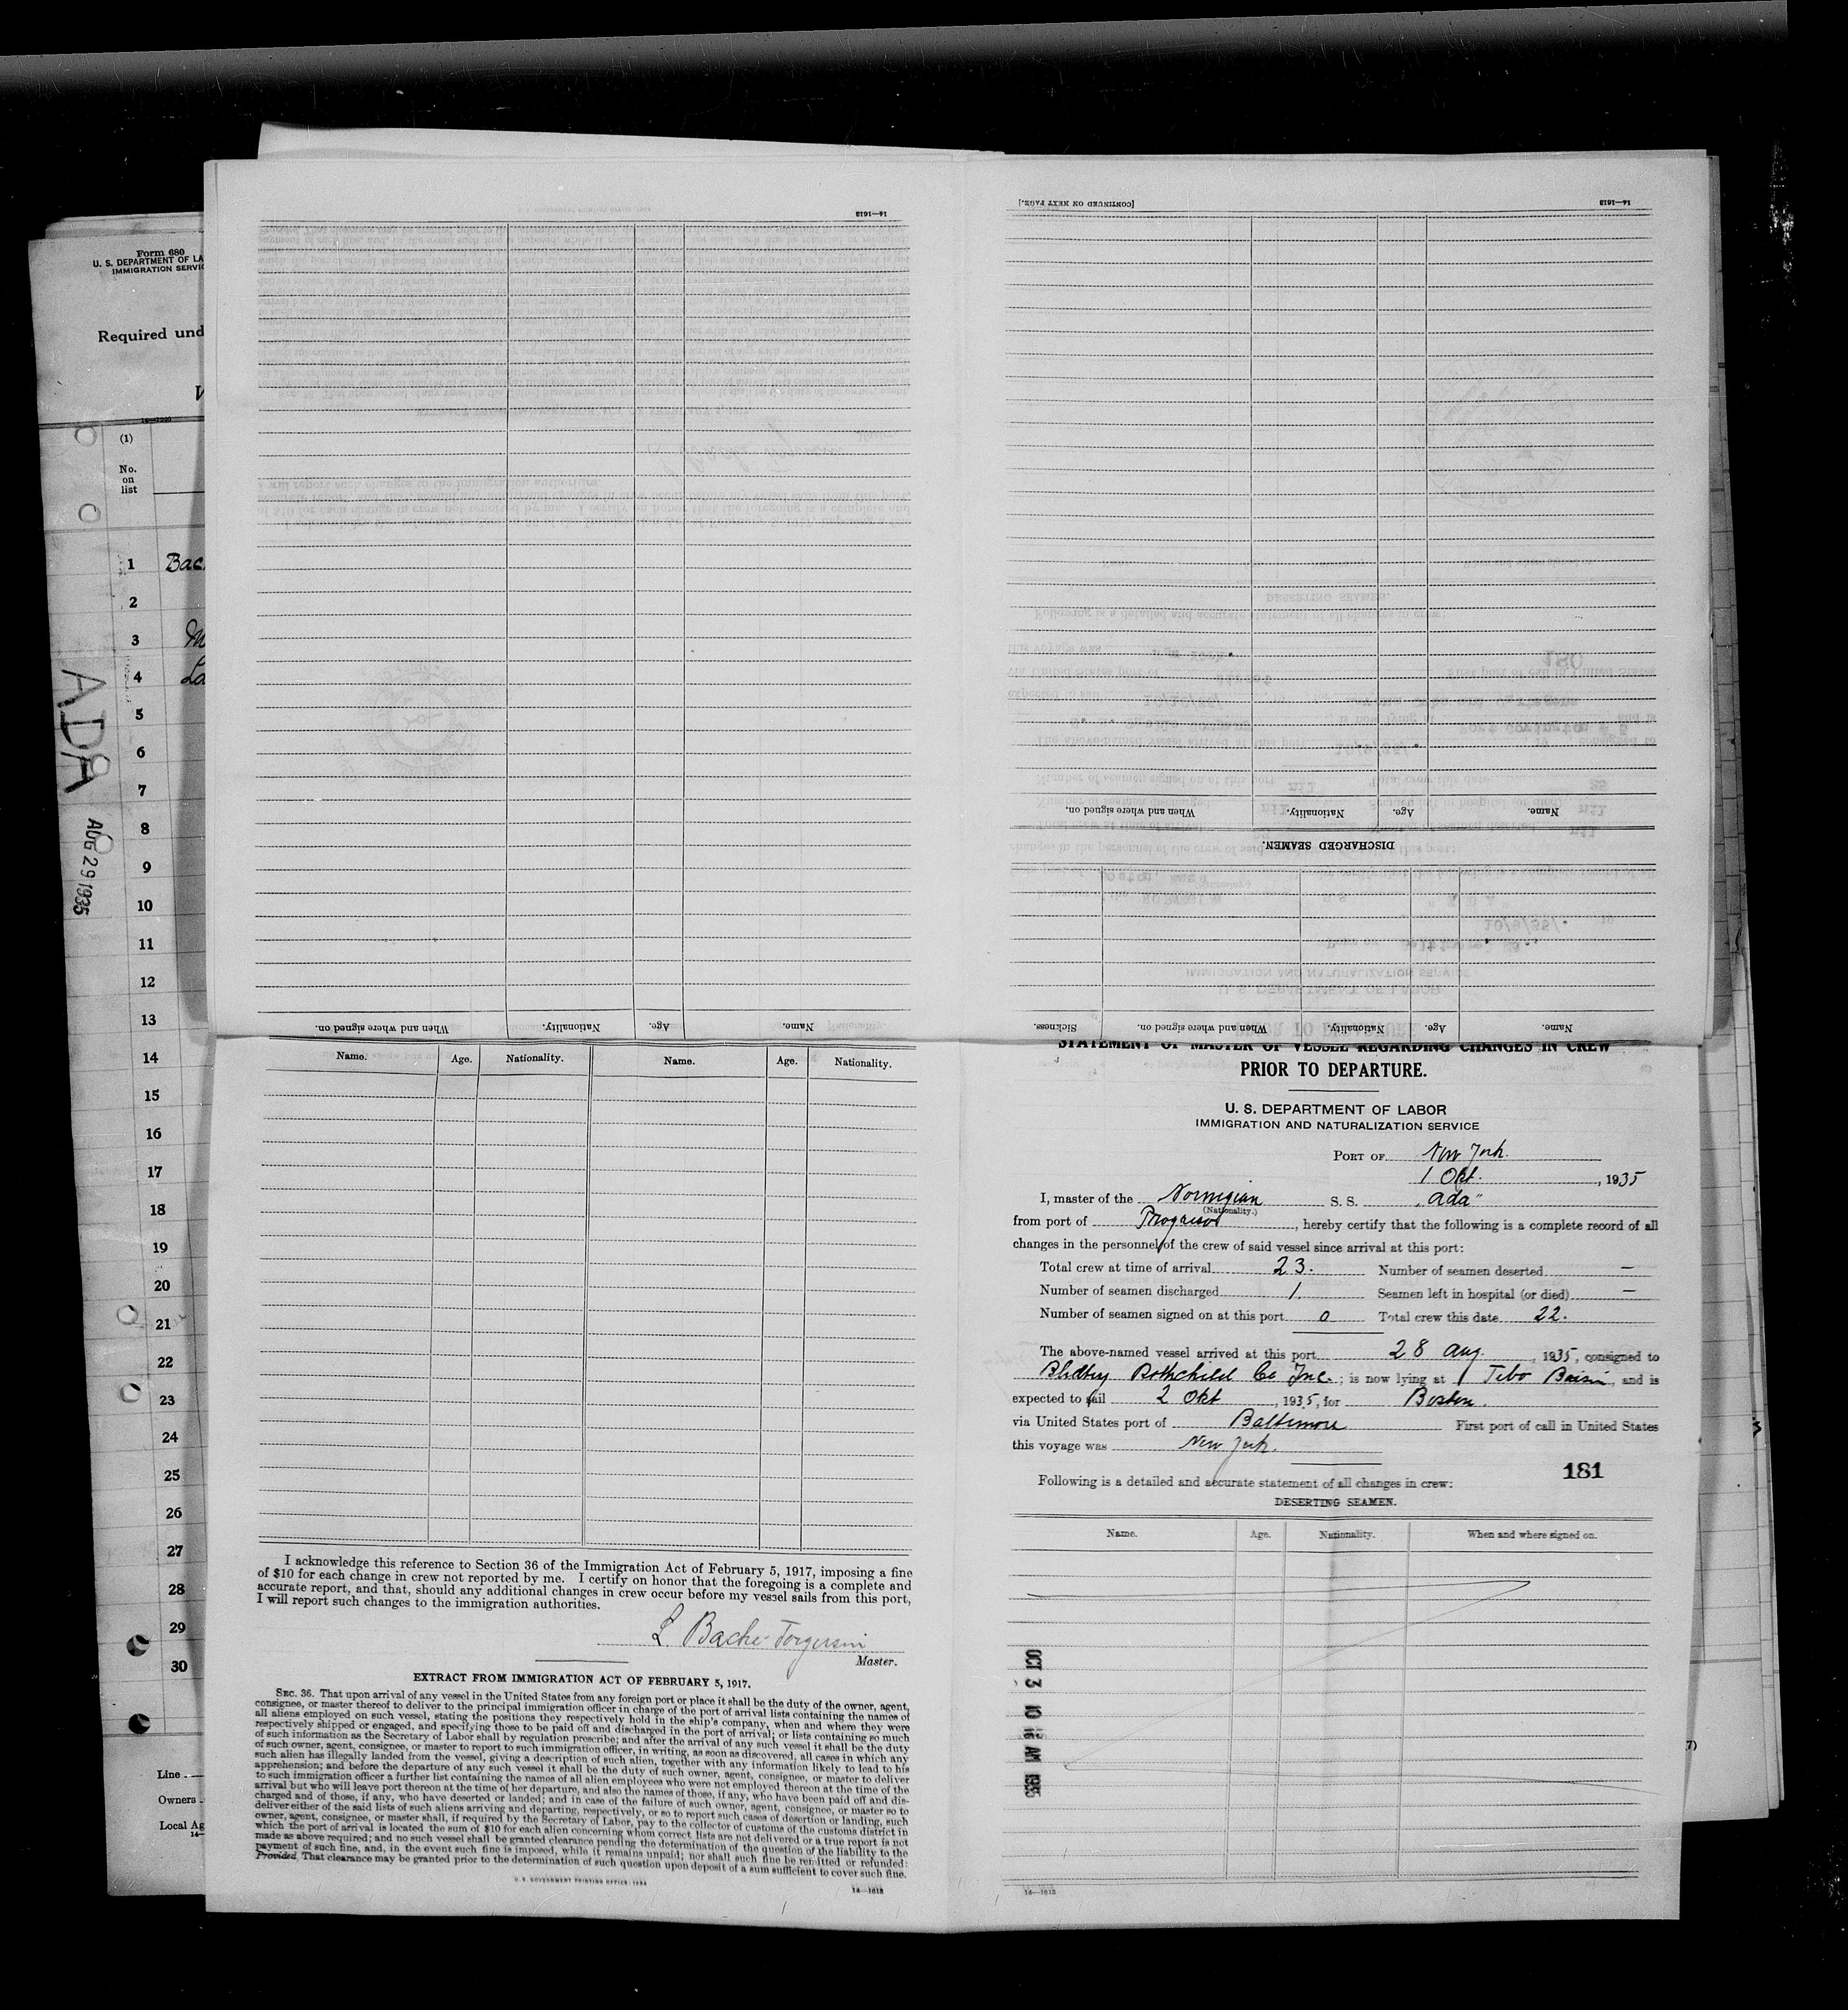 Form 680
U. S. DEPARTMENT OF LA
IMMIGRATION SERVIC
Required und
(1)
No.
on
list
1 Bac
2
3 M
4 La
5
6
7
8
9
10
11
12
13
14
15
16
17
18
19
20
21
22
23
24
25
26
27
28
29
30
ADA
AUG 29 1935
Line
Owners
Local Ag
14—
14—1613
When and where signed on. Nationality. Age. Name.
[CONTINUED ON NEXT PAGE.]
14—1613
When and where signed on. Nationality. Age. Name.
DISCHARGED SEAMEN.
Sickness. When and where signed on. Nationality. Age. Name.
Name. Age. Nationality. Name. Age. Nationality.
I acknowledge this reference to Section 36 of the Immigration Act of February 5, 1917, imposing a fine
of $10 for each change in crew not reported by me. I certify on honor that the foregoing is a complete and
accurate report, and that, should any additional changes in crew occur before my vessel sails from this port,
I will report such changes to the immigration authorities.
L Bache-Torgersen
Master.
EXTRACT FROM IMMIGRATION ACT OF FEBRUARY 5, 1917.
SEC. 36. That upon arrival of any vessel in the United States from any foreign port or place it shall be the duty of the owner, agent,
consignee, or master thereof to deliver to the principal immigration officer in charge of the port of arrival lists containing the names of
all aliens employed on such vessel, stating the positions they respectively hold in the ship's company, when and where they were
respectively shipped or engaged, and specifying those to be paid off and discharged in the port of arrival; or lists containing so much
of such information as the Secretary of Labor shall by regulation prescribe; and after the arrival of any such vessel it shall be the duty
of such owner, agent, consignee, or master to report to such immigration officer, in writing, as soon as discovered, all cases in which any
such alien has illegally landed from the vessel, giving a description of such alien, together with any information likely to lead to his
apprehension; and before the departure of any such vessel it shall be the duty of such owner, agent, consignee, or master to deliver
to such immigration officer a further list containing the names of all alien employees who were not employed thereon at the time of the
arrival but who will leave port thereon at the time of her departure, and also the names of those, if any, who have been paid off and dis-
charged and of those, if any, who have deserted or landed; and in case of the failure of such owner, agent, consignee, or master so to
deliver either of the said lists of such aliens arriving and departing, respectively, or so to report such cases of desertion or landing, such
owner, agent, consignee, or master shall, if required by the Secretary of Labor, pay to the collector of customs of the customs district in
which the port of arrival is located the sum of $10 for each alien concerning whom correct lists are not delivered or a true report is not
made as above required; and no such vessel shall be granted clearance pending the determination of the question of the liability to the
payment of such fine, and, in the event such fine is imposed, while it remains unpaid; nor shall such fine be remitted or refunded:
Provided, That clearance may be granted prior to the determination of such question upon deposit of a sum sufficient to cover such fine.
U. S. GOVERNMENT PRINTING OFFICE: 1934
14—1613
STATEMENT OF MASTER OF VESSEL REGARDING CHANGES IN CREW
PRIOR TO DEPARTURE.
U. S. DEPARTMENT OF LABOR
IMMIGRATION AND NATURALIZATION SERVICE
PORT OF New York.
1 Okt. , 1935
I, master of the Norwegian S. S. "Ada"
(Nationality.)
from port of Progreso , hereby certify that the following is a complete record of all
changes in the personnel of the crew of said vessel since arrival at this port:
Total crew at time of arrival 23. Number of seamen deserted —
Number of seamen discharged 1. Seamen left in hospital (or died) —
Number of seamen signed on at this port 0 Total crew this date 22.
The above-named vessel arrived at this port 28 Aug. , 1935, consigned to
Rothchild Co Inc.; is now lying at Tebo , and is
expected to sail 2 Okt , 1935, for Boston.
via United States port of Baltimore First port of call in United States
this voyage was New York.
181
Following is a detailed and accurate statement of all changes in crew:
DESERTING SEAMEN.
Name. Age. Nationality. When and where signed on.
OCT 3 10 AM 1935
14—1613